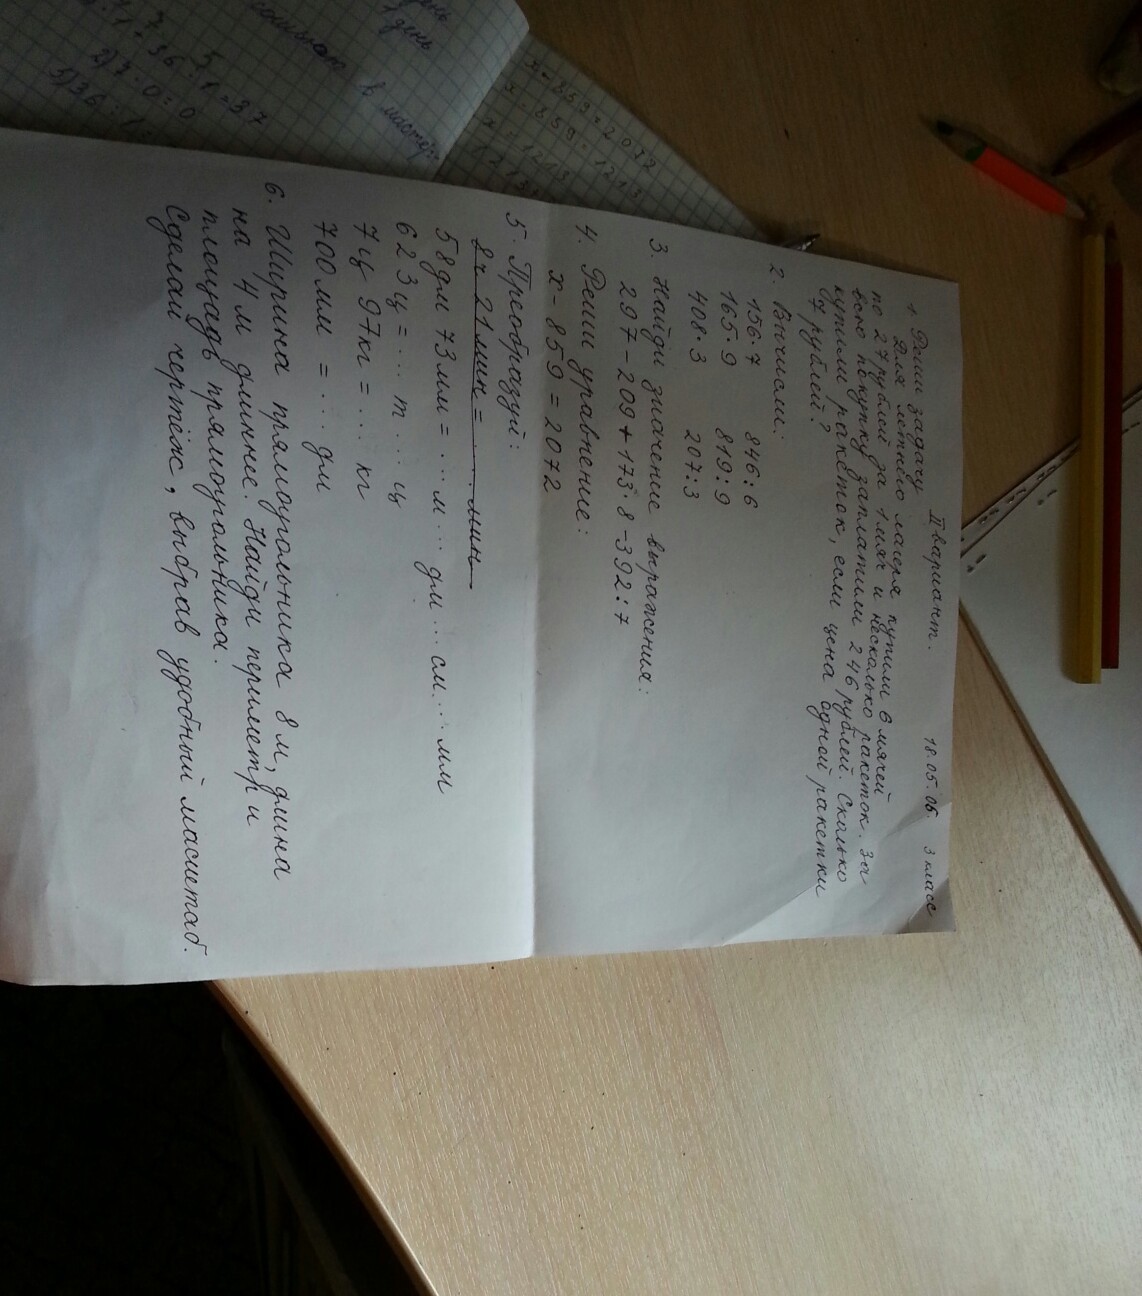 II вариант. 18.05.06. 3 класс
1. Реши задачу
Для летнего лагеря купили 8 мячей
по 27 рублей за 1 мяч и несколько ракеток. За
всю покупку заплатили 246 рублей. Сколько
купили ракеток, если цена одной ракетки
7 рублей?
2. Вычисли:
156·7 846:6
165·9 819:9
408·3 207:3
3. Найди значение выражения:
297-209+173·8-392:7
4. Реши уравнение:
х-859=2072
5. Преобразуй:
8ч 21мин=... мин
58дм 73мм=...м...дм...см...мм
623ц=...т...ц
7ц 97кг=...кг
700мм=...дм
6. Ширина прямоугольника 8м, длина
на 4м длиннее. Найди периметр и
площадь прямоугольника.
Сделай чертёж, выбрав удобный масштаб.
день
в мастер.
36:1=37
2)7·0=0
3)36:1=
х-859=2072